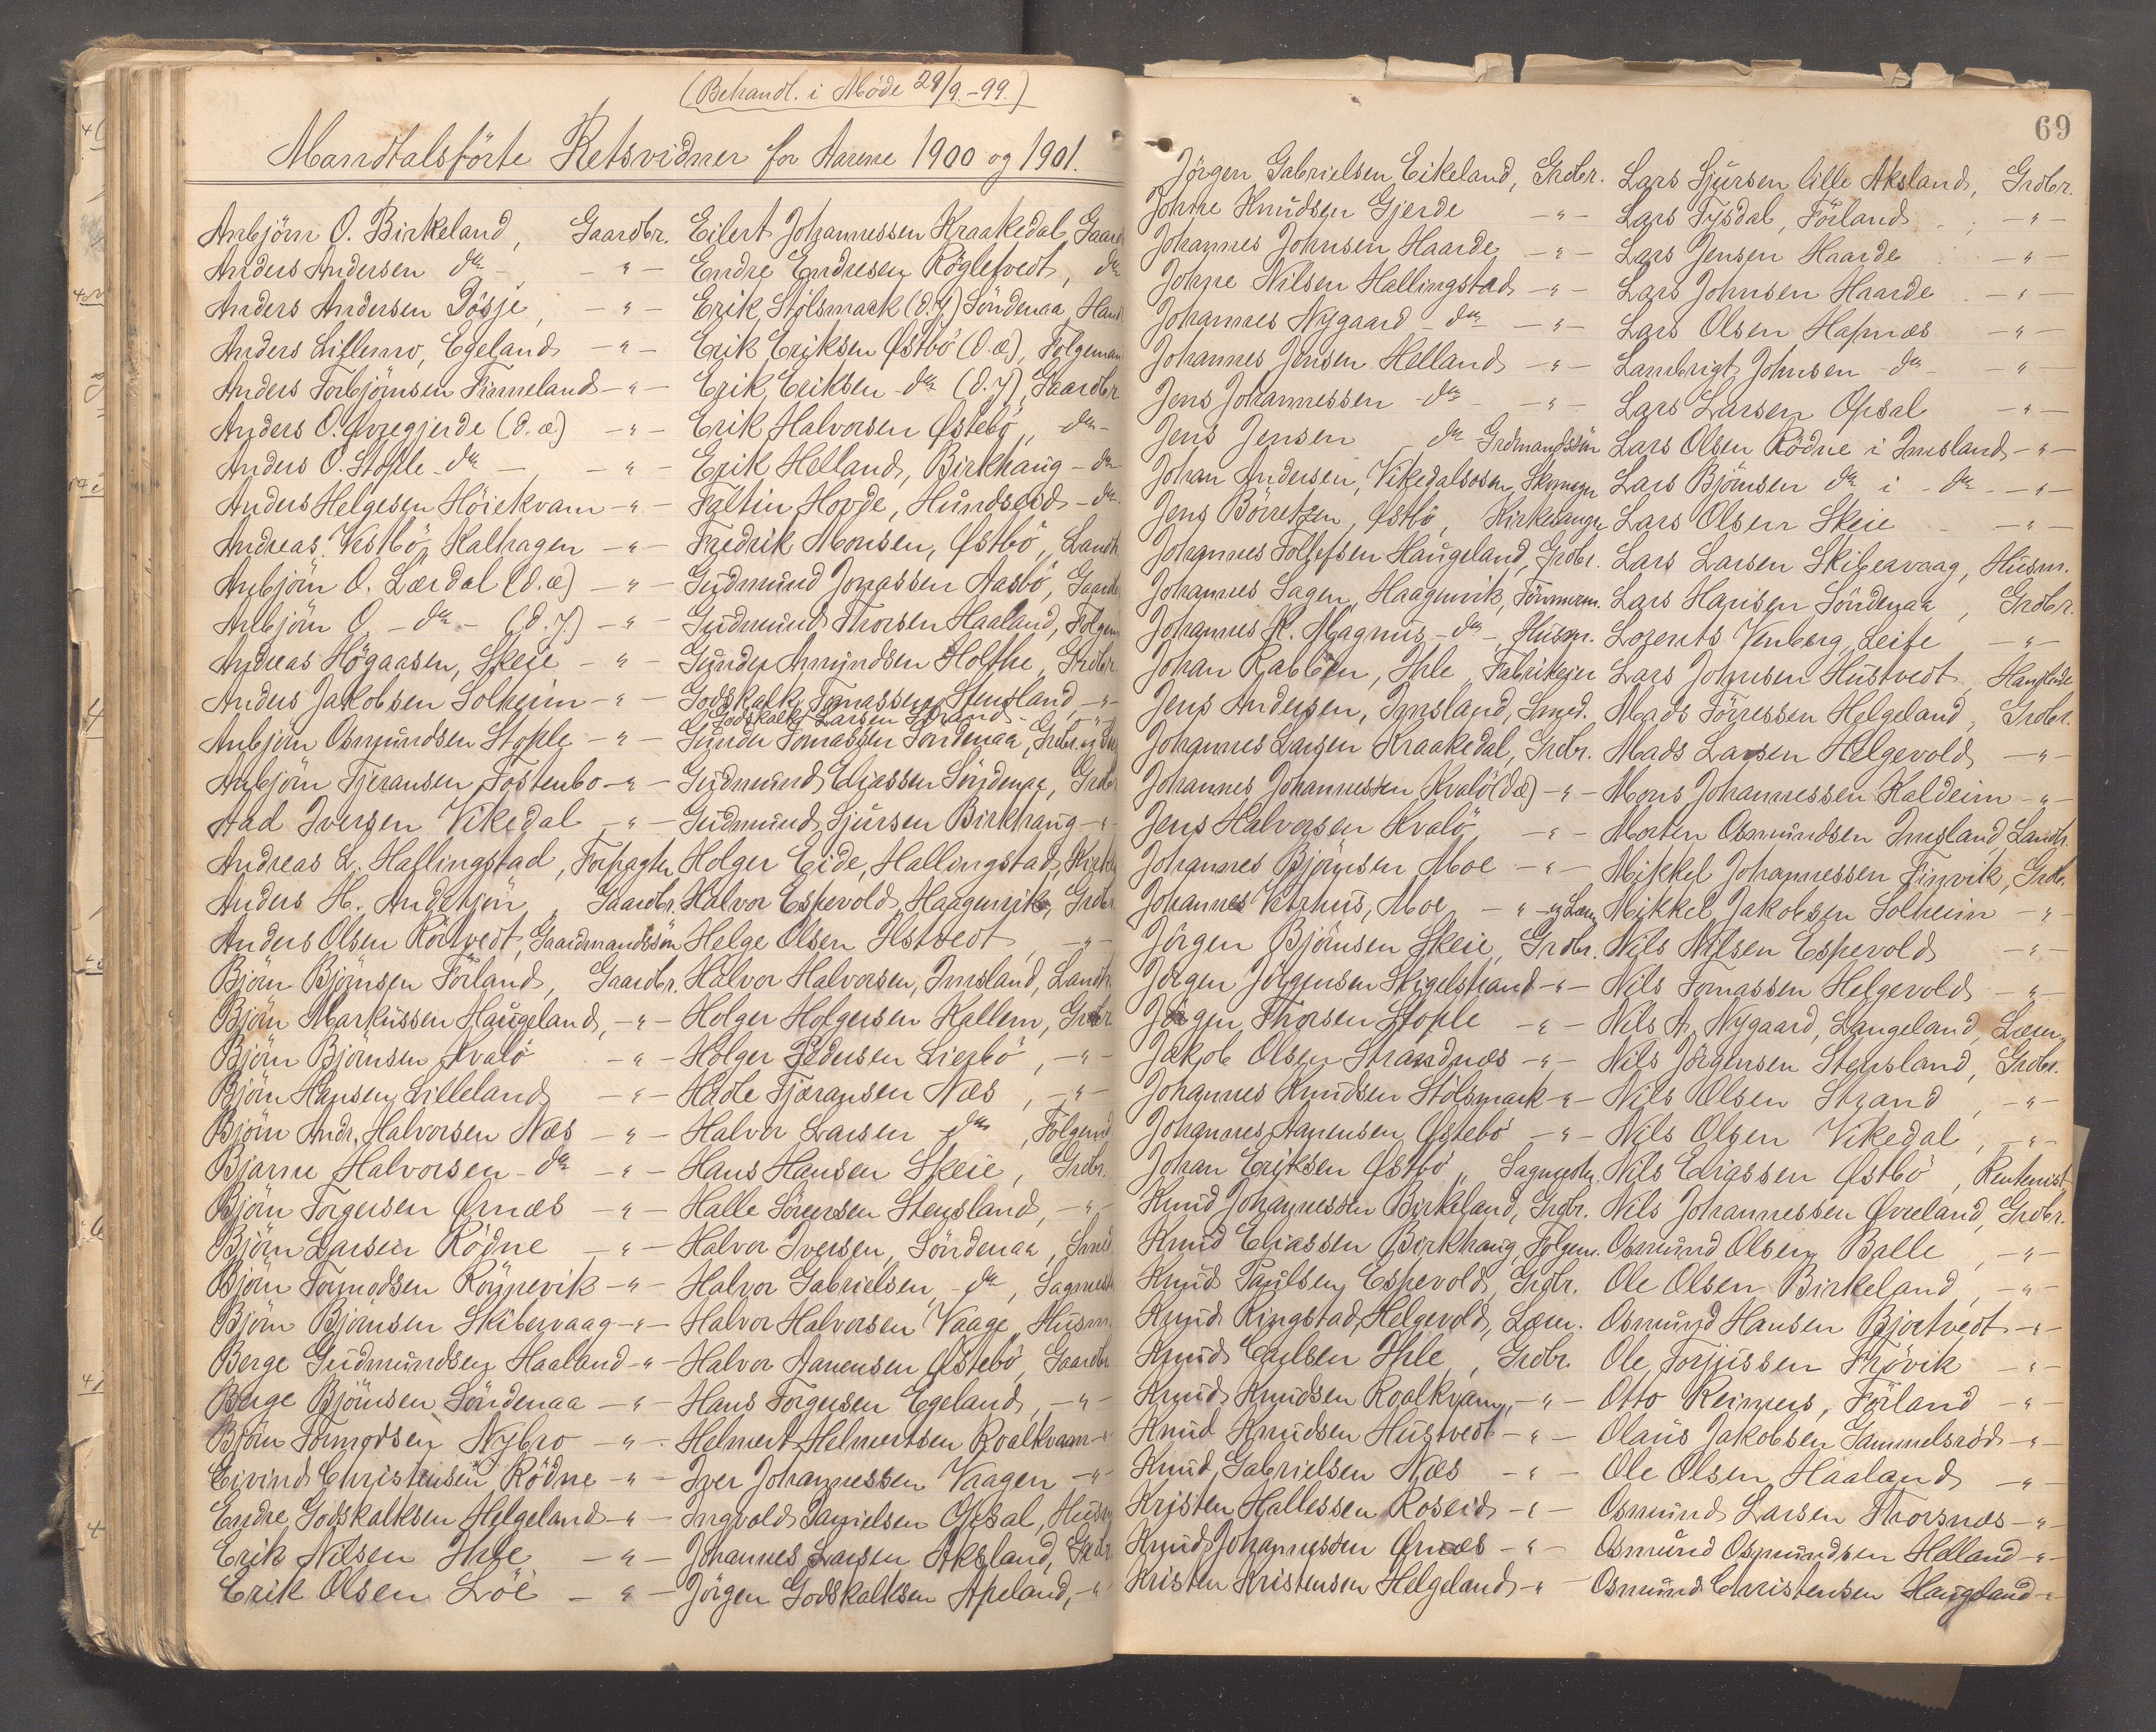 (Behandl. i Møde 29/9.-99.)
Mandtalsförte Retsvidner for Aarene 1900 og 1901.
Anbjörn O. Birkeland, Gaardbr.
Anders Andersen do - " -
Anders Andersen Dösje, - " -
Anders Lillemo, Egeland - " -
Anders Torbjörnsen Finneland - " -
Anders O. Øvregjerde (d.æ) - " -
Anders O. Stople - do -, - " -
Anders Helgesen Höiekvam - " -
Andreas Vestbö, Kalhagen - " -
Anbjörn O. Lærdal (d.æ) - " -
Anbjörn O. - do - (d.y.) - " -
Andreas Högaasen, Skeie - " -
Anders Jakobsen Solheim - " -
Anbjörn Osmundsen Stople - " -
Anbjörn Tjeransen Tostenbo - " -
Aad Iversen Vikedal - " -
Andreas L. Hallingstad, Forpagter
Anders H. Gaardbr.
Anders Olsen Rörtvedt, Gaardmandssön
Björn Björnsen Förland, Gaardbr.
Björn Markussen Haugeland, - " -
Björn Björnsen Kvalö - " -
Björn Hansen Lilleland - " -
Björn Andr. Halvorsen Næs - " -
Bjarne Halvorsen - do - " -
Björn Torgersen Ørnæs - " -
Björn Larsen Rödne - " -
Björn Tormodsen Rönnevik - " -
Björn Björnsen Skibervaag - " -
Berge Gudmundsen Haaland - " -
Berge Björnsen Söndenaa - " -
Björn Tormodsen Nybro - " -
Eivind Christensen Rödne - " -
Endre Godskalksen Helgeland - " -
Erik Nilsen Ihle - " -
Erik Olsen Löe - " -
Eilert Johannessen Kraakedal, Gaard
Endre Endresen Röglefvedt, do
Erik Stölsmark (d.y.) Söndenaa, Hand
Erik Eriksen Østbö (d.æ), Folgeman
Erik Eriksen - do (d.y.) Gaardbr
Erik Halvorsen Østebö, - do -
Erik Helland, Birkhaug - do -
Faltin Hovde, Hundseid - do -
Fredrik Monsen, Østbö, Landh
Gudmund Jonassen Aasbö, Gaardb
Gudmund Thorsen Haaland, Folgem
Gunder Amundsen Holthe, Grdbr.
Godskalk Tomassen Stensland - " -
Godskalk Larsen Strand - " -
Gunder Tomassen Söndenaa, Grdbr. og
Gudmund Eliassen Söndenaa, Grdbr
Gudmund Sjursen Birkhaug - " -
Holger Eide, Hallingstad, Kirke
Halvor Espevold, Haagenvik, Grdbr
Helge Olsen Ilstvedt, - " -
Halvor Halvorsen, Imsland, Landh
Holger Holgersen Kallem, Grdbr
Holger Pedersen Lierbö, - " -
Hadle Tjæransen Næs, - " -
Halvor Larsen - do -, Fölgemd
Hans Hansen Skeie, Grdbr.
Halle Sörensen Stensland, - " -
Halvor Iversen, Söndenaa, Smed
Halvor Gabrielsen, - do -, Sagmest
Halvor Halvorsen Vaage, Husm.
Halvor Aanensen Østebö, Gaardbr
Hans Torgersen Egeland, - " -
Helmert Helmertsen Roalkvam - " -
Iver Johannessen Vaagen - " -
Ingvald Danielsen Opsal, Husm
Johannes Larsen Aksland, Grdbr
Jörgen Godskalksen Apeland, - " -
69
Jörgen Gabrielsen Eikeland, Grdbr.
Johne Knudsen Gjerde - " -
Johannes Johnsen Haarde - " -
Johne Nilsen Hallingstad - " -
Johannes Nygaard - do - " -
Johannes Jensen Helland - " -
Jens Johannessen - do - " -
Jens Jensen - do Grdmandssön
Johan Andersen, Vikedalsosen, Skomager
Jens Börretzen, Østbö, Kirkesanger
Johannes Tollefsen Haugeland, Grdbr.
Johannes Sagen, Haagenvik, Tömmerm.
Johannes K. Magnus - do -, Husm.
Johan Rabben, Ihle, Fabrikeier
Jens Andersen, Imsland, Smed.
Johannes Larsen Kraakedal, Grdbr.
Johannes Johannessen Kvalö (d.æ) - " -
Jens Halvorsen Kvalö - " -
Johannes Björnsen Moe - " -
Johannes Vatrhus, Moe - " - og Lærer
Jörgen Björnsen Skeie, Grdbr.
Jörgen Jörgensen Skigelstrand - " -
Jörgen Thorsen Stople - " -
Jakob Olsen Strandnæs - " -
Johannes Knudsen Stölsmark - " -
Johannes Aanensen Østebö - " -
Johan Eriksen Østbö, Sagmester
Knud Johannessen Birkeland, Grdbr.
Knud Eliassen Birkhaug, Folgem.
Knud Paulsen Espevold, Grdbr.
Knud Ringstad, Helgevold, Lærer.
Knud Ihle, Grdbr.
Knud Knudsen Roalkvam, - " -
Knud Knudsen Hustvedt - " -
Knud Gabrielsen Næs - " -
Kristen Hallessen Roseid - " -
Knud Johannessen Ørnæs - " -
Kristen Kristensen Helgeland - " -
Lars Sjursen lille Aksland, Grdbr.
Lars Tysdal, Förland - " -
Lars Jensen Haarde - " -
Lars Johnsen Haarde - " -
Lars Olsen Hapnæs - " -
Lambrigt Johnsen - do - " -
Lars Larsen Opsal - " -
Lars Olsen Rödne i Imsland - " -
Lars Björnsen do i - do - " -
Lars Olsen Skeie - " -
Lars Larsen Skibervaag, Husm.
Lars Hansen Söndenaa, Grdbr.
Lorents Venberg, Leite - " -
Lars Johnsen Hustvedt, Handlende
Mads Förressen Helgeland, Grdbr.
Mads Larsen Helgevold - " -
Mons Johannessen Kaldeim - " -
Morten Osmundsen Imsland, Landh.
Mikkel Johannessen Finvik, Grdbr.
Mikkel Jakobsen Solheim - " -
Nils Nilsen Espevold - " -
Nils Tomassen Helgevold - " -
Nils A. Nygaard, Langeland, Lærer
Nils Jörgensen Stensland, Grdbr.
Nils Olsen Strand, - " -
Nils Olsen Vikedal, - " -
Nils Eliassen Østbö, Rentenist
Nils Johannessen Øvreland, Grdbr.
Osmund Olsen Balle, - " -
Ole Olsen Birkeland, - " -
Osmund Hansen Bjortvedt - " -
Ole Torjussen Frövik - " -
Otto Reimers, Förland - " -
Olaus Jakobsen Gammelsröd - " -
Ole Olsen Haaland - " -
Osmund Larsen Thorsnæs - " -
Osmund Osmundsen Helland - " -
Osmund Christensen Haugeland - " -